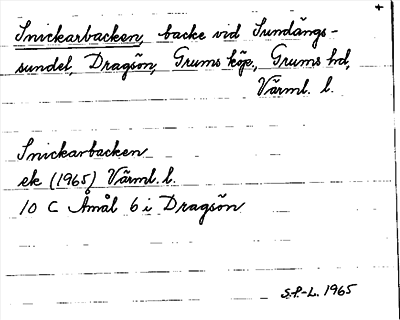 +
Snickarbacken, backe vid Sundängs-
sundet, Dragsön, Grums köp., Grums hd,
Värml. l.
Snickarbacken
ek (1965) Värml. l.
10 C Åmål 6 i Dragsön
S.P-L. 1965